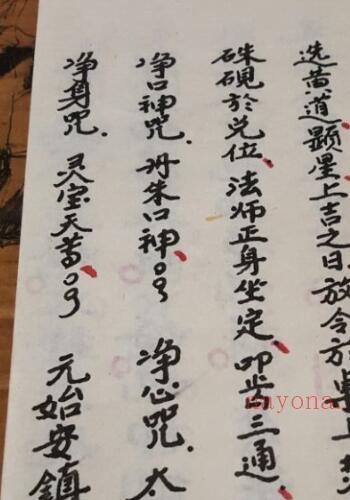 选黄道显星上吉之日放令于桌上
硃砚於兑位、法师正身坐定、叩齿三通
净口神咒、丹朱口神、 净心咒、太
净身咒、灵宝天尊、 元始安镇
myona